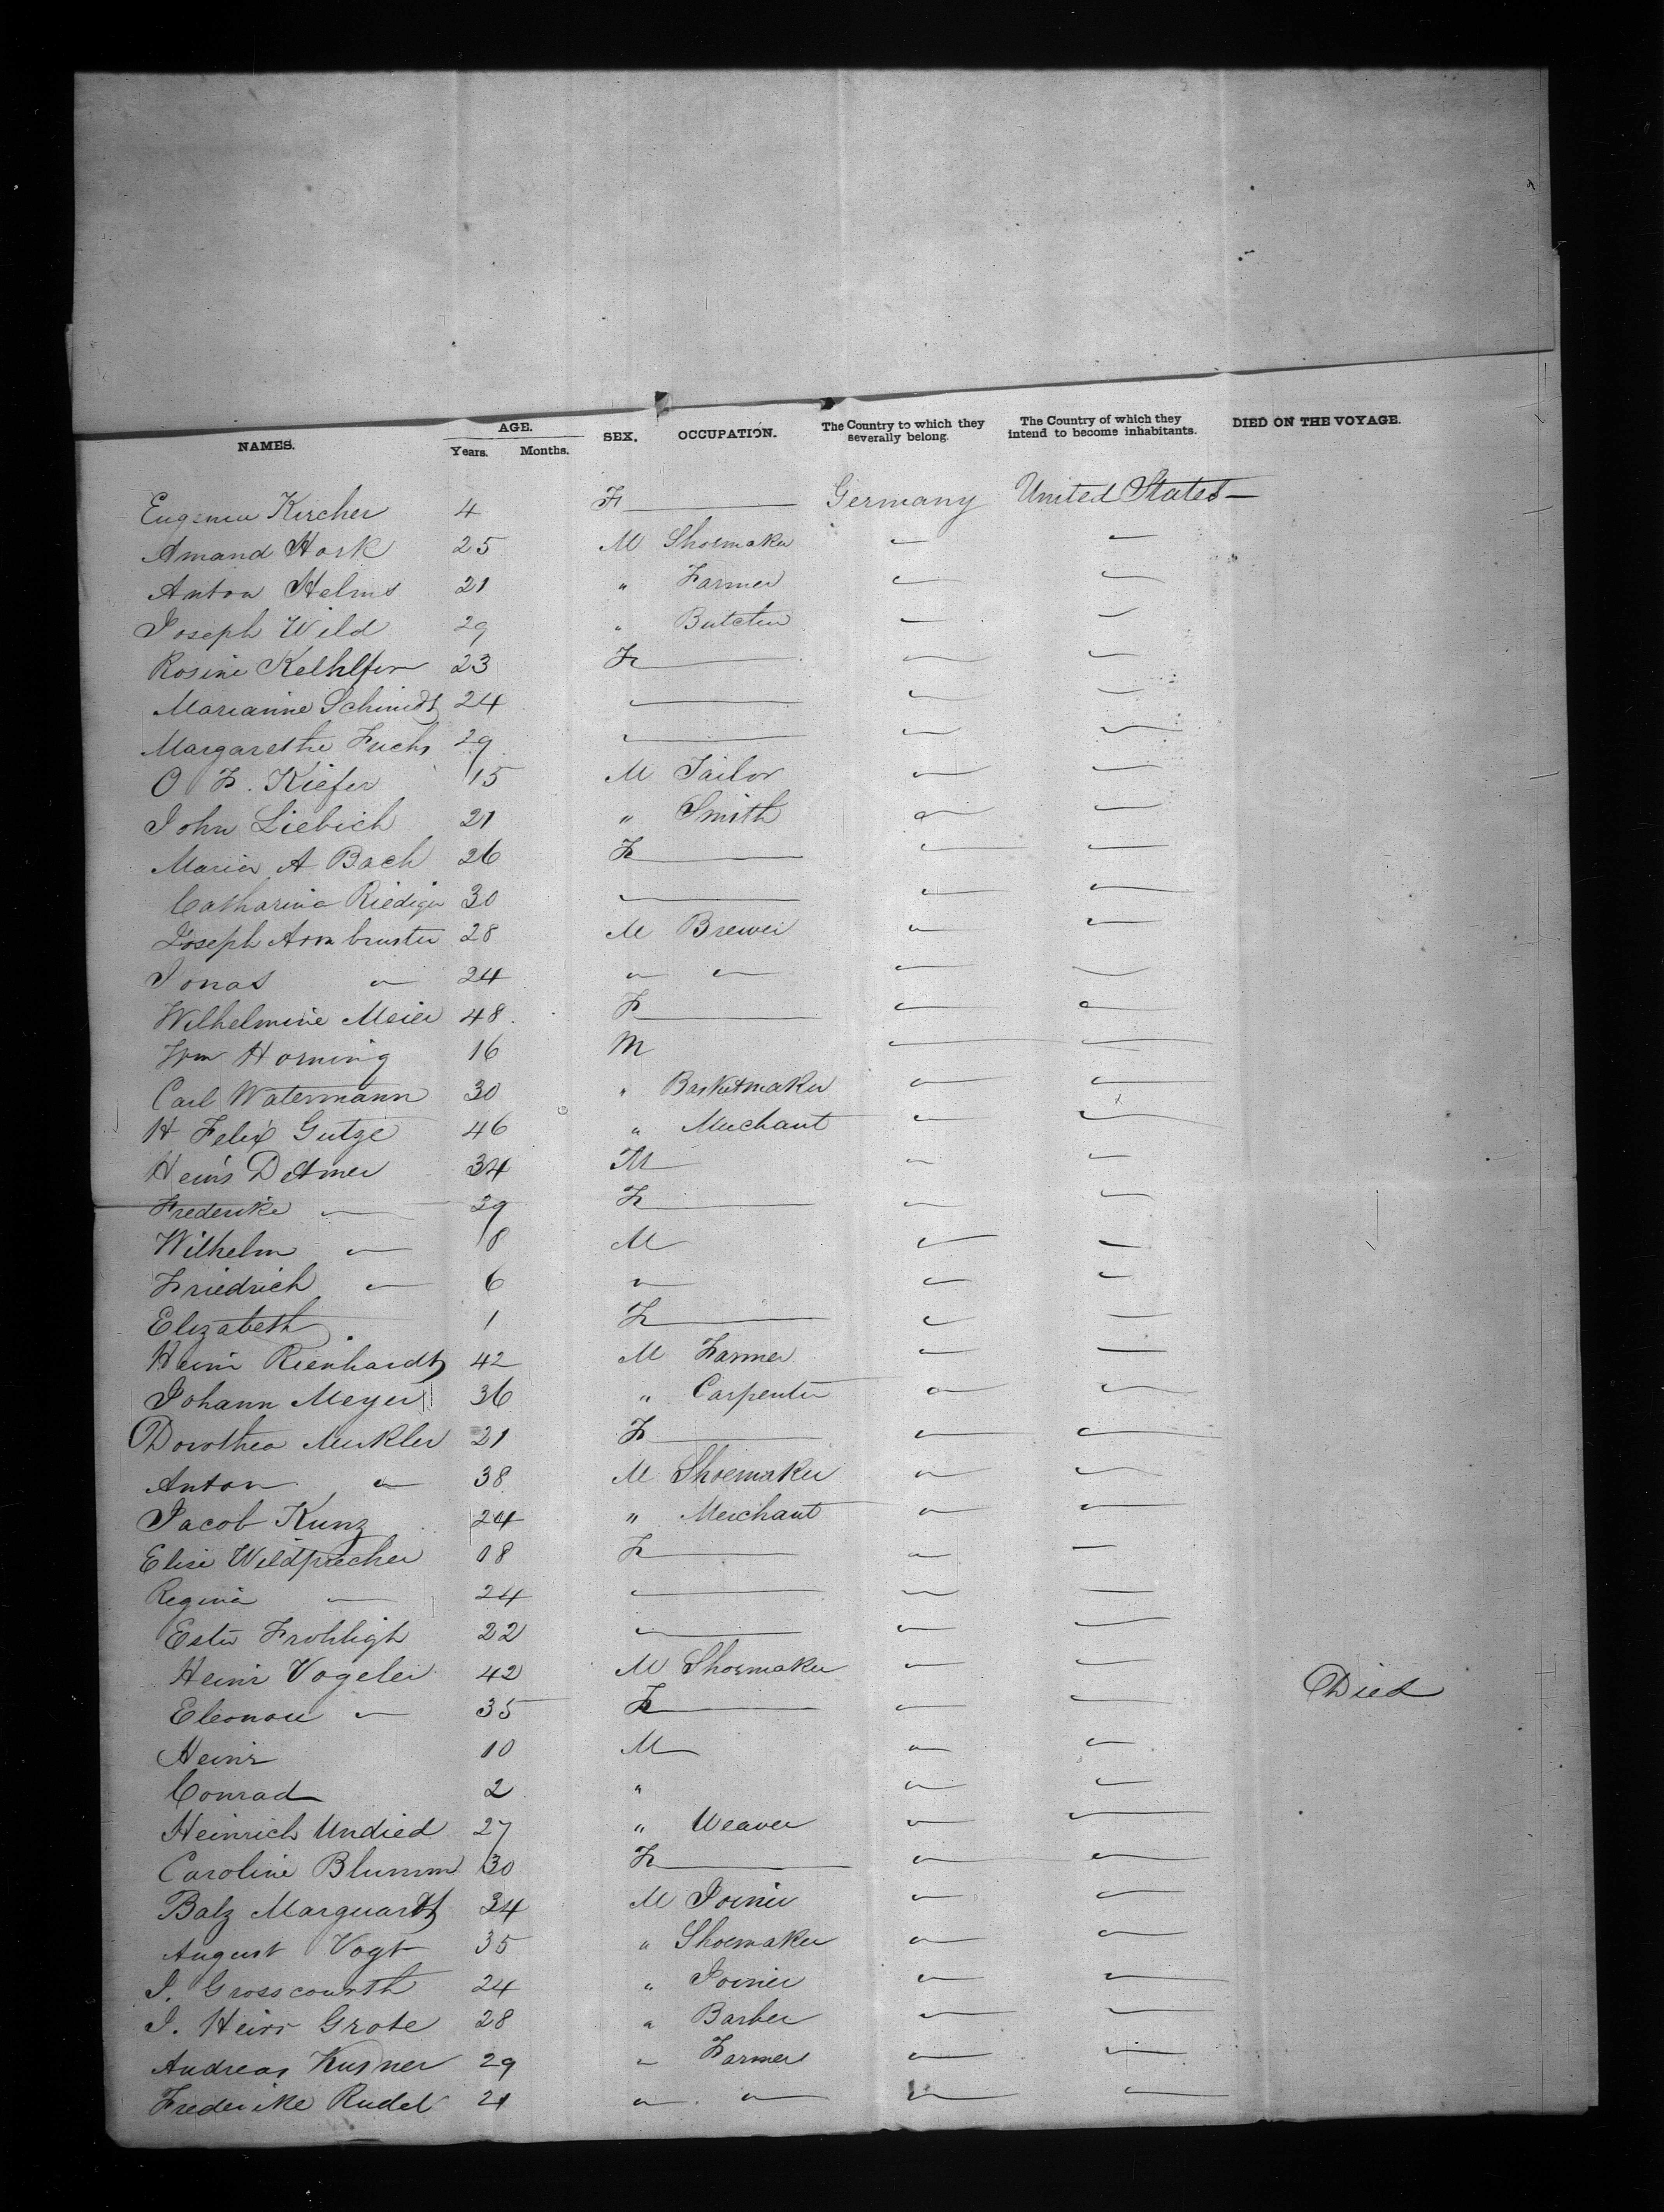 NAMES. AGE. SEX. OCCUPATION. The Country to which they severally belong. The Country of which they intend to become inhabitants. DIED ON THE VOYAGE.
Years. Months.
Eugenia Kircher 4 F — Germany United States —
Amand Hork 25 M Shoemaker — —
Anton Helms 21 " Farmer — —
Joseph Wild 29 " Butcher — —
Rosine 23 F — — —
Marianne Schmidt 24 — — —
Margarethe Fuchs 29 — — —
O F. Kiefer 15 M Tailor — —
John Liebich 21 " Smith — —
Maria A Bach 26 F — — —
Catharina Riediger 30 — — —
Joseph Armbruster 28 M Brewer — —
Jonas " 24 " " — —
Wilhelmine Meier 48 F — — —
Wm Horning 16 M — —
Carl Watermann 30 " Basketmaker — —
H Felix Gutze 46 " Merchant — —
Heinr Detmer 34 M — —
Frederike — 29 F — — —
Wilhelm " 8 M — —
Friedrich " 6 " — —
Elizabeth 1 F — — —
Heinr Rienhardt 42 M Farmer — —
Johann Meyer 36 " Carpenter — —
Dorothea Merkler 21 F — — —
Anton " 38 M Shoemaker — —
Jacob Kunz 24 " Merchant — —
Elise Wildprecher 18 F — — —
Regina — 24 — — —
Ester Frohligh 22 — — —
Heinr Vogeler 42 M Shoemaker — —
Eleonore " 35 F — — — Died
Heinr 10 M — —
Conrad 2 " — —
Heinrich Undied 27 " Weaver — —
Caroline Blumm 30 F — — —
Balz Marquardt 34 M Joiner — —
August Vogt 35 " Shoemaker — —
J. Grosscourth 24 " Joiner — —
J. Heinr Grote 28 " Barber — —
Andreas Kusner 29 " Farmer — —
Frederike Rudel 21 " " — —